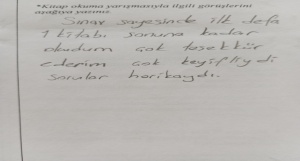 "Kitap okuma yarışmasıyla ilgili görüşlerini
aşağıya yazınız
Sınav sayesinde ilk defa
1 kitabı sonuna kadar
okudum çok teşekkür
ederim çok keyifliydi
sorular harikaydı.